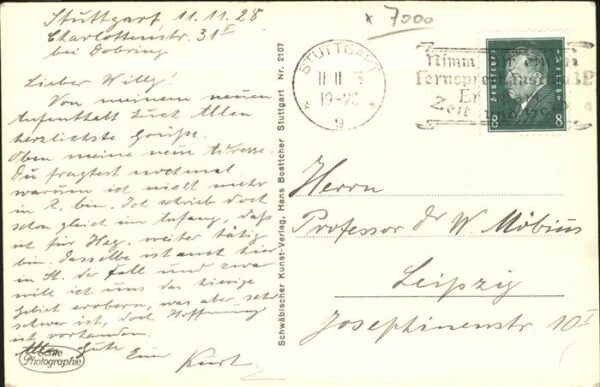 Stuttgart 11.11.28
Charlottenstr. 31 II
bei Dobring
Lieber Willy!
Von meinem neuen
Aufenthalt Euch Allen
herzlichste Grüße.
Oben meine neue Adresse.
Du fragtest nochmal
warum ich nicht mehr
in Z. bin. Ich schrieb doch
schon gleich im Anfang, daß
ich für Weg. weiter tätig
bin. Dasselbe ist auch hier
in St. der Fall und zwar
will ich uns das hiesige
Gebiet erobern, was aber sehr
schwer ist, doch Hoffnung
ist vorhanden.
Alles Gute
Euer Kurt
Echte
Photographie
Schwäbischer Kunst-Verlag, Hans Boettcher Stuttgart Nr. 2107
x 7000
STUTTGART
11 11 8
19-20
9
Nimm
Fernsprechanschluß
Zeit
Deutsches Reich
8 8
Herrn
Professor Dr W. Möbius
Leipzig
Josephinenstr 10 I